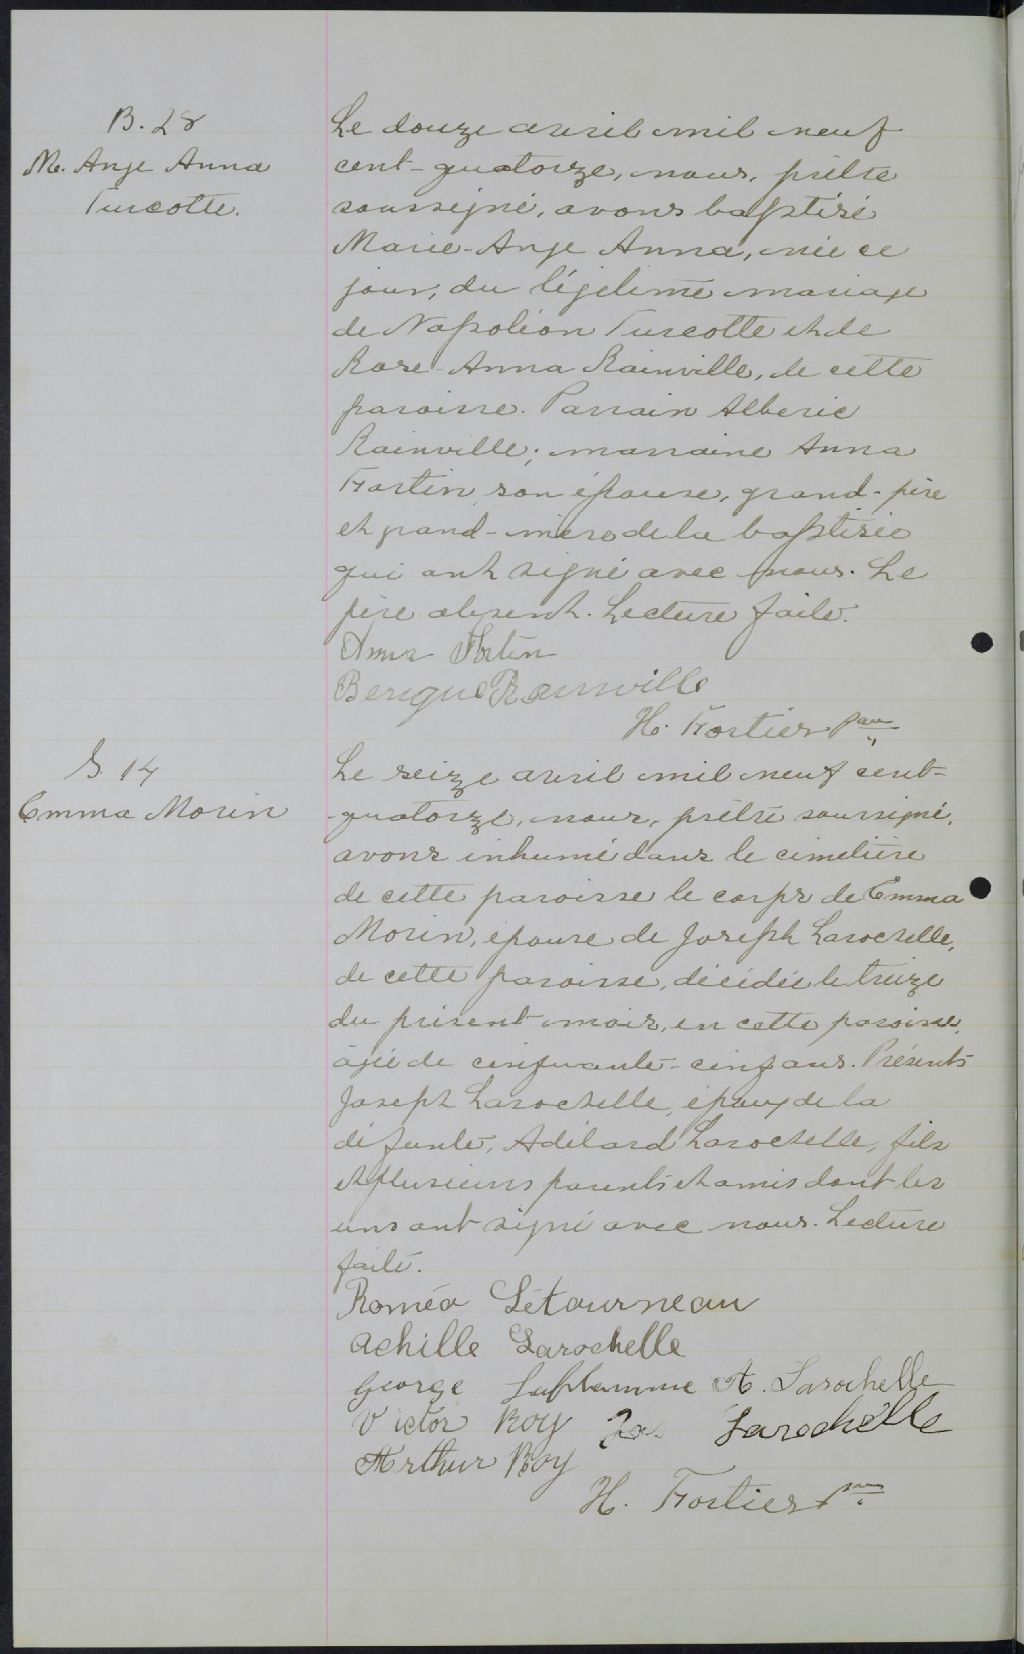 B. 28
M. Ange Anna
Turcotte.
Le douze avril mil neuf
cent-quatorze, nous, prêtre
soussigné, avons baptisé
Marie-Ange Anna, née ce
jour, du légitime mariage
de Napoléon Turcotte et de
Rose-Anna Rainville, de cette
paroisse. Parrain Alberic
Rainville; marraine Anna
Fortin son épouse, grand-père
et grand-mère de la baptisée
qui ont signé avec nous. Le
père absent. Lecture faite.
Anna Fortin
Rainville
H. Fortier Ptre
S. 14
Emma Morin
Le seize avril mil neuf cent-
quatorze, nous, prêtre soussigné,
avons inhumé dans le cimetière
de cette paroisse le corps de Emma
Morin, épouse de Joseph Larochelle,
de cette paroisse, décédée le treize
du présent mois, en cette paroisse,
âgée de cinquante-cinq ans. Présents
Joseph Larochelle, époux de la
défunte, Adélard Larochelle, fils
et plusieurs parents et amis dont les
uns ont signé avec nous. Lecture
faite.
Roméo Létourneau
Achille Larochelle
George Laflamme A. Larochelle
Victor Roy Jos Larochelle
Arthur Roy
H. Fortier